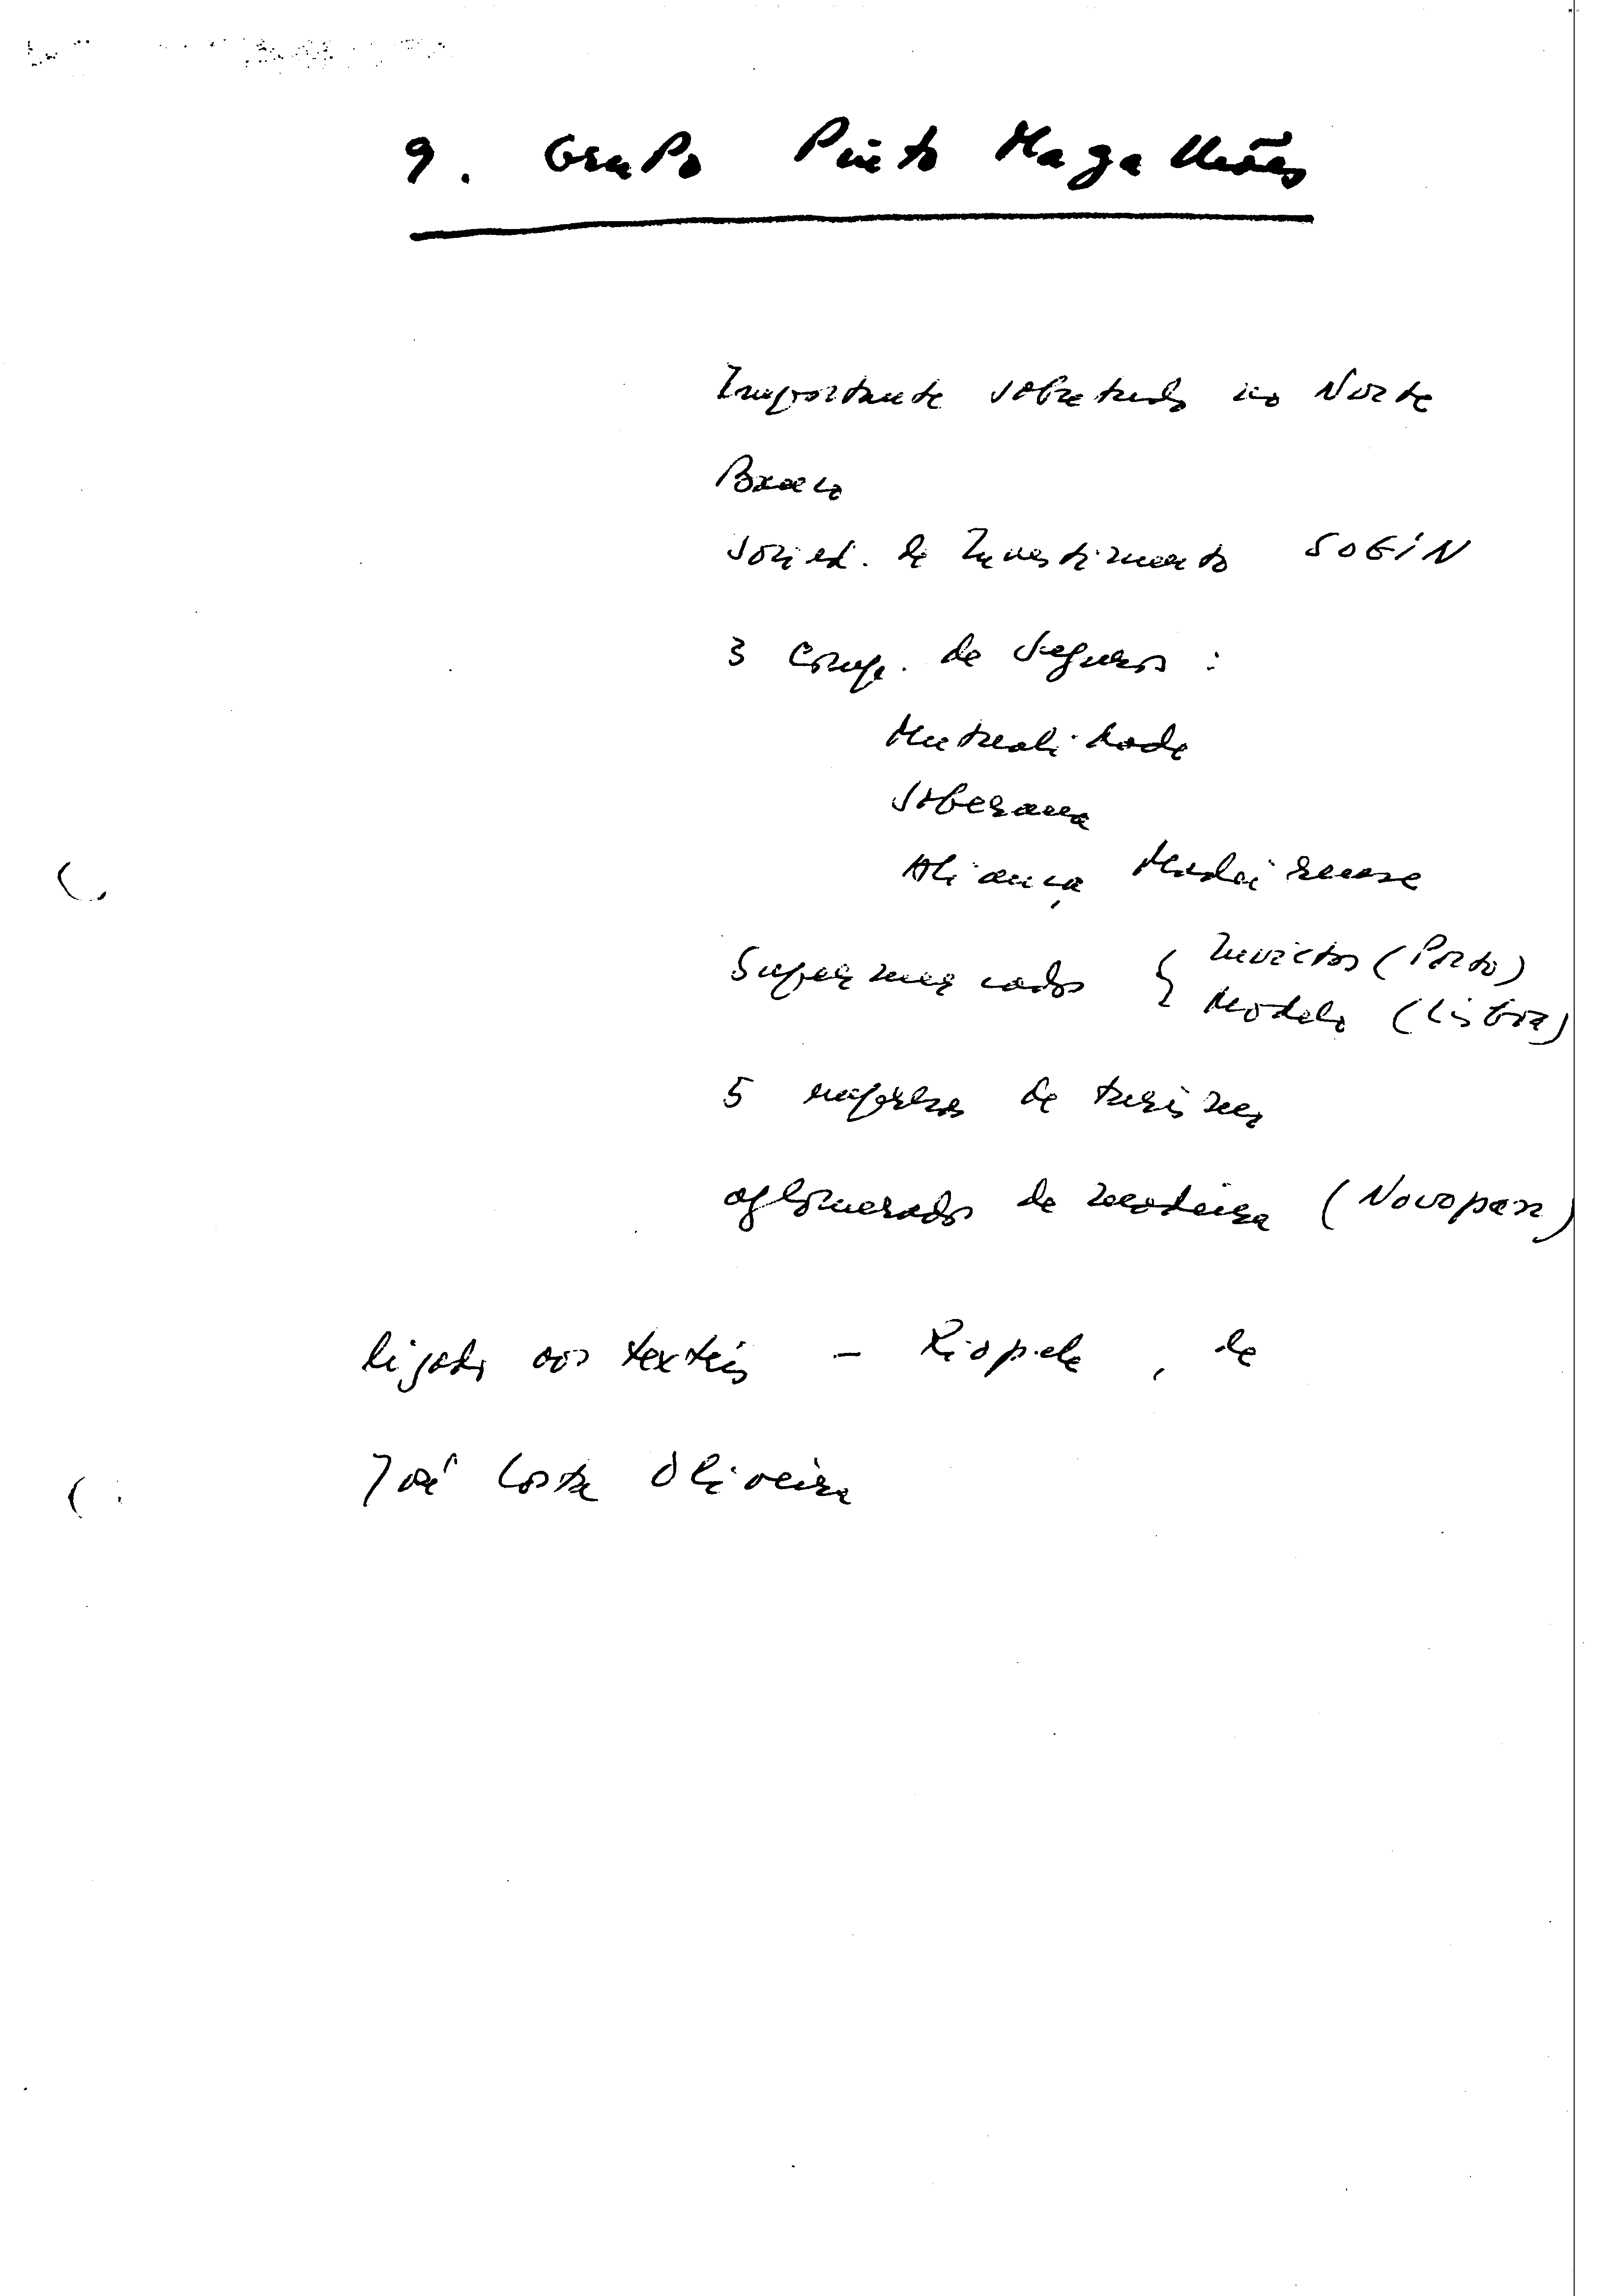 9. Grupo Pinto Magalhães
Importante sobretudo no Norte
Banco
Socied. de Investimento SOGIN
3 Comp. de Seguros :
Mutualidade
Soberana
Aliança Madeirense
Supermercados { Invictos (Porto)
Modelo (Lisboa)
5 empresas de turismo
aglomerados de madeira (Novopan)
ligado aos texteis - Riopele, de
José Costa Oliveira